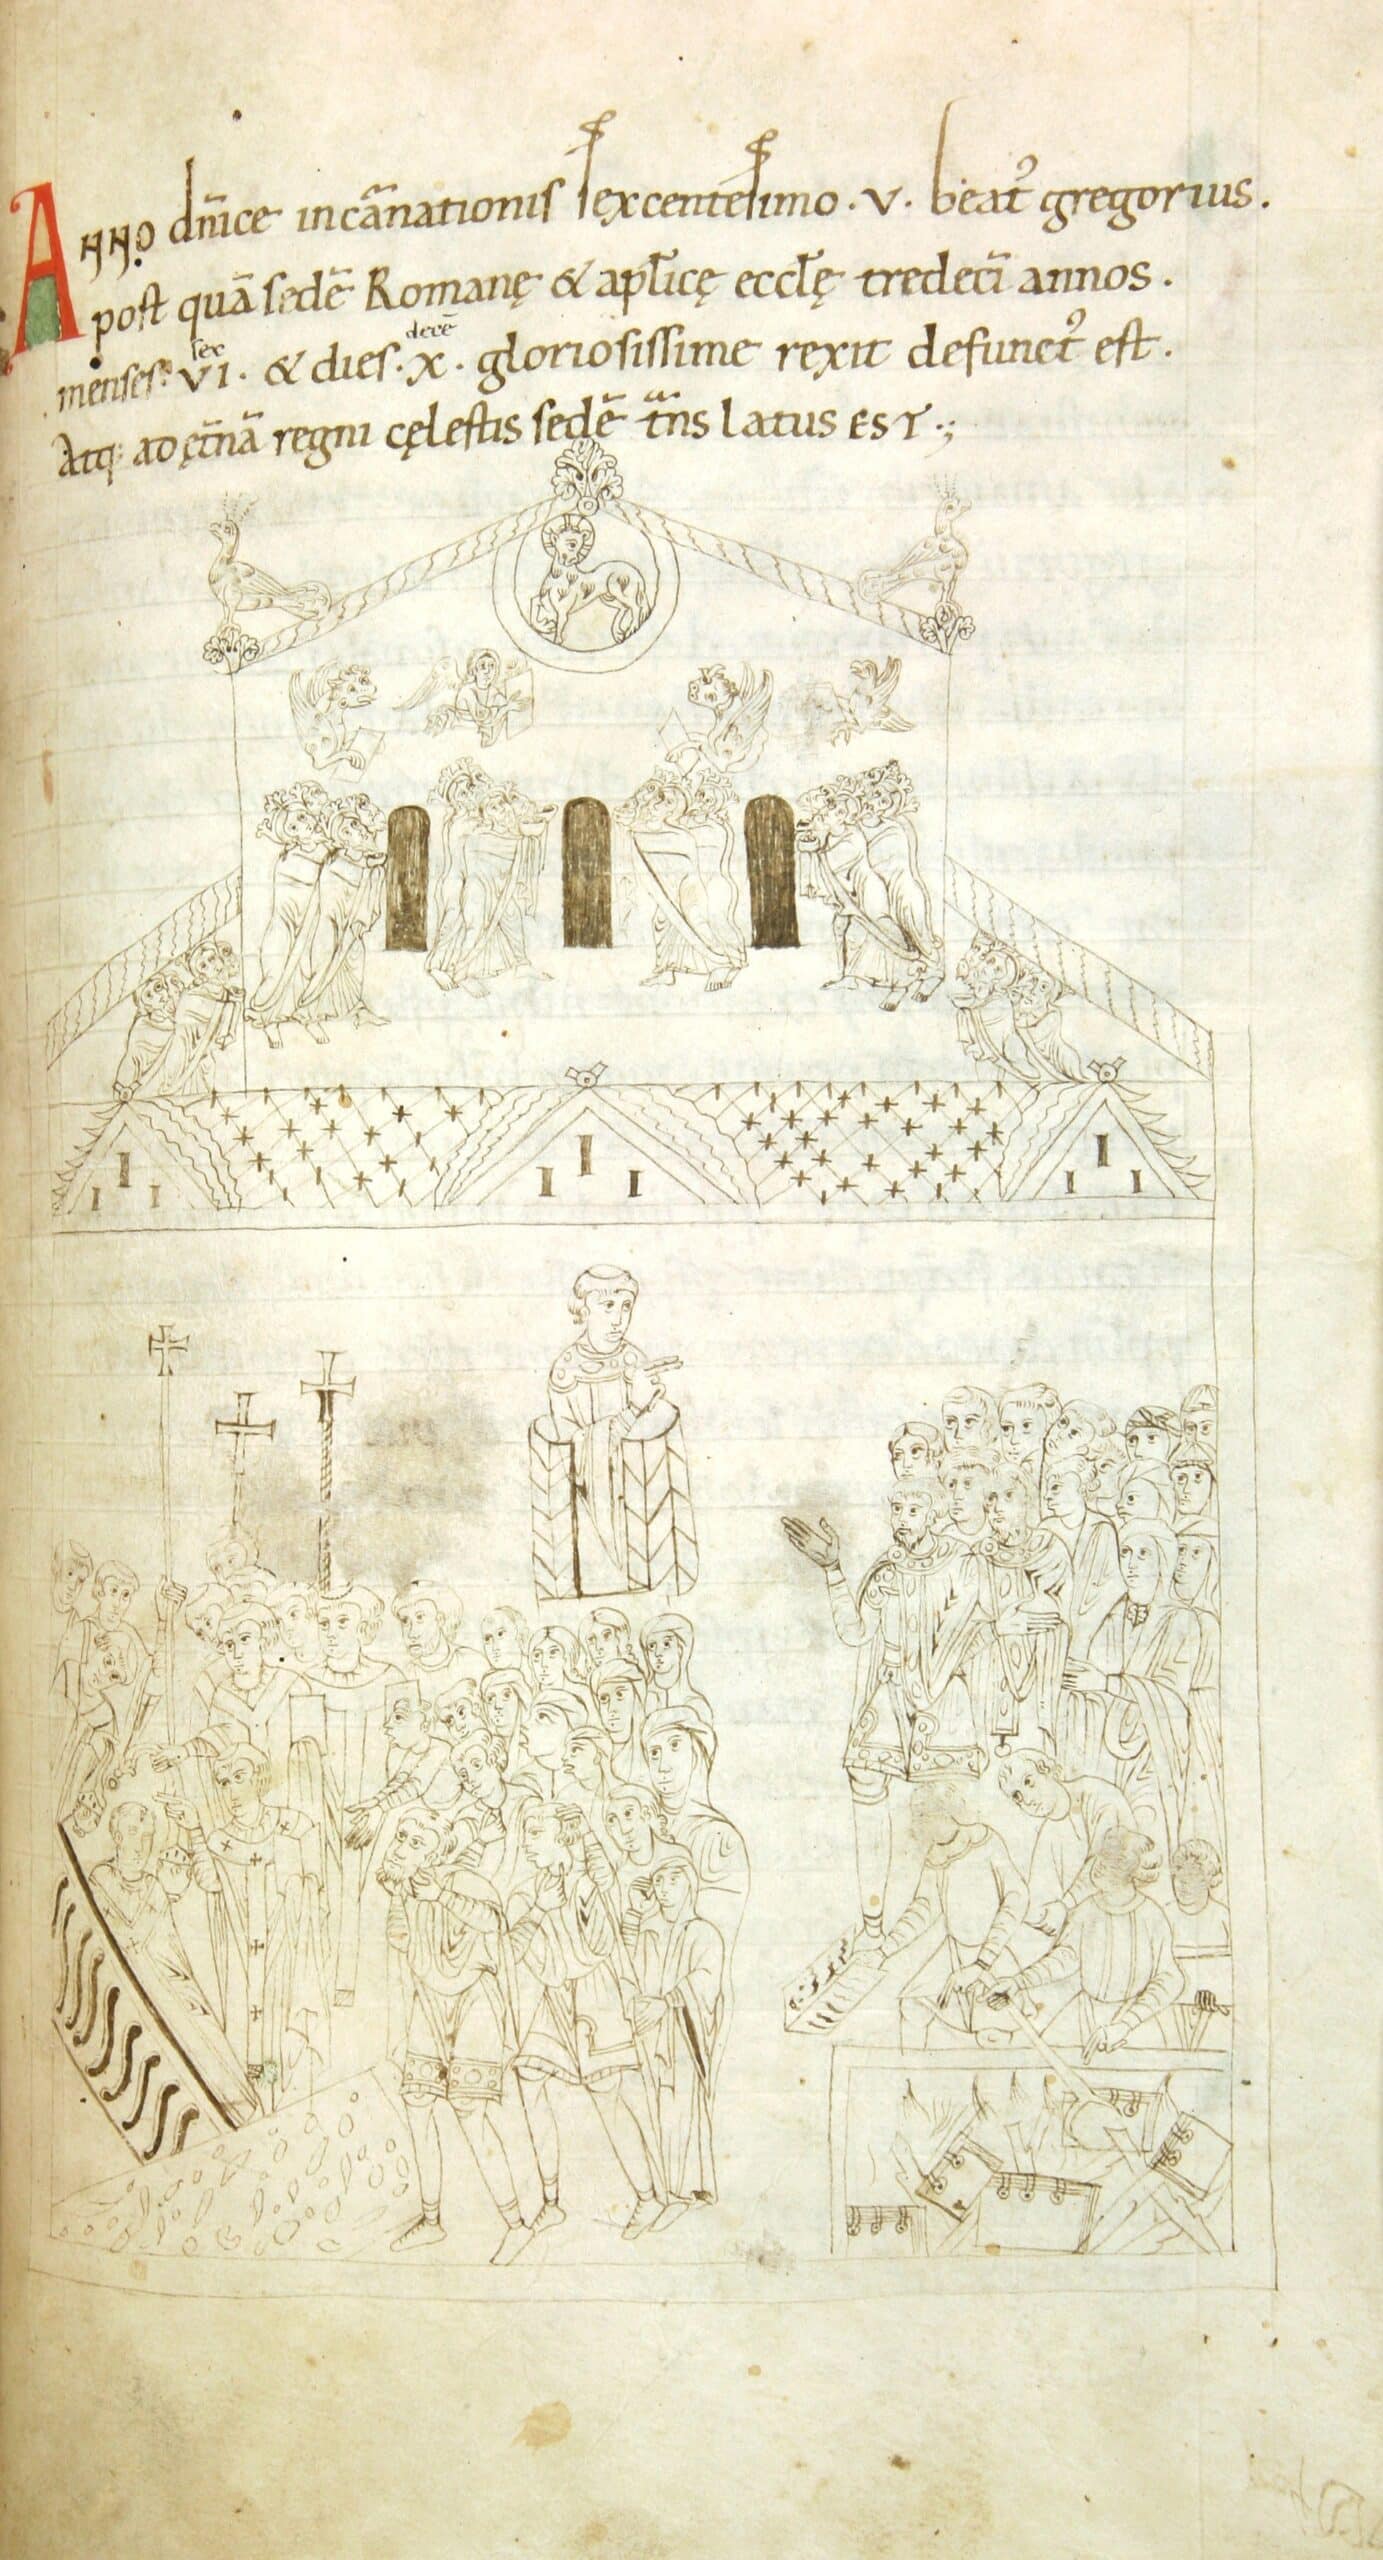 Anno dn̄ice incānationis sexcentesimo · v · beat᷒ gregorius .
post quā sedē Romanę & ap̄licę eccl̄ę tredecī annos .
menses · sex vi · & dies · decē x · gloriosissime rexit defunct᷒ est .
Atq; ad ęt̄nā regni cęlestis sedē tͣns latus EST ·;